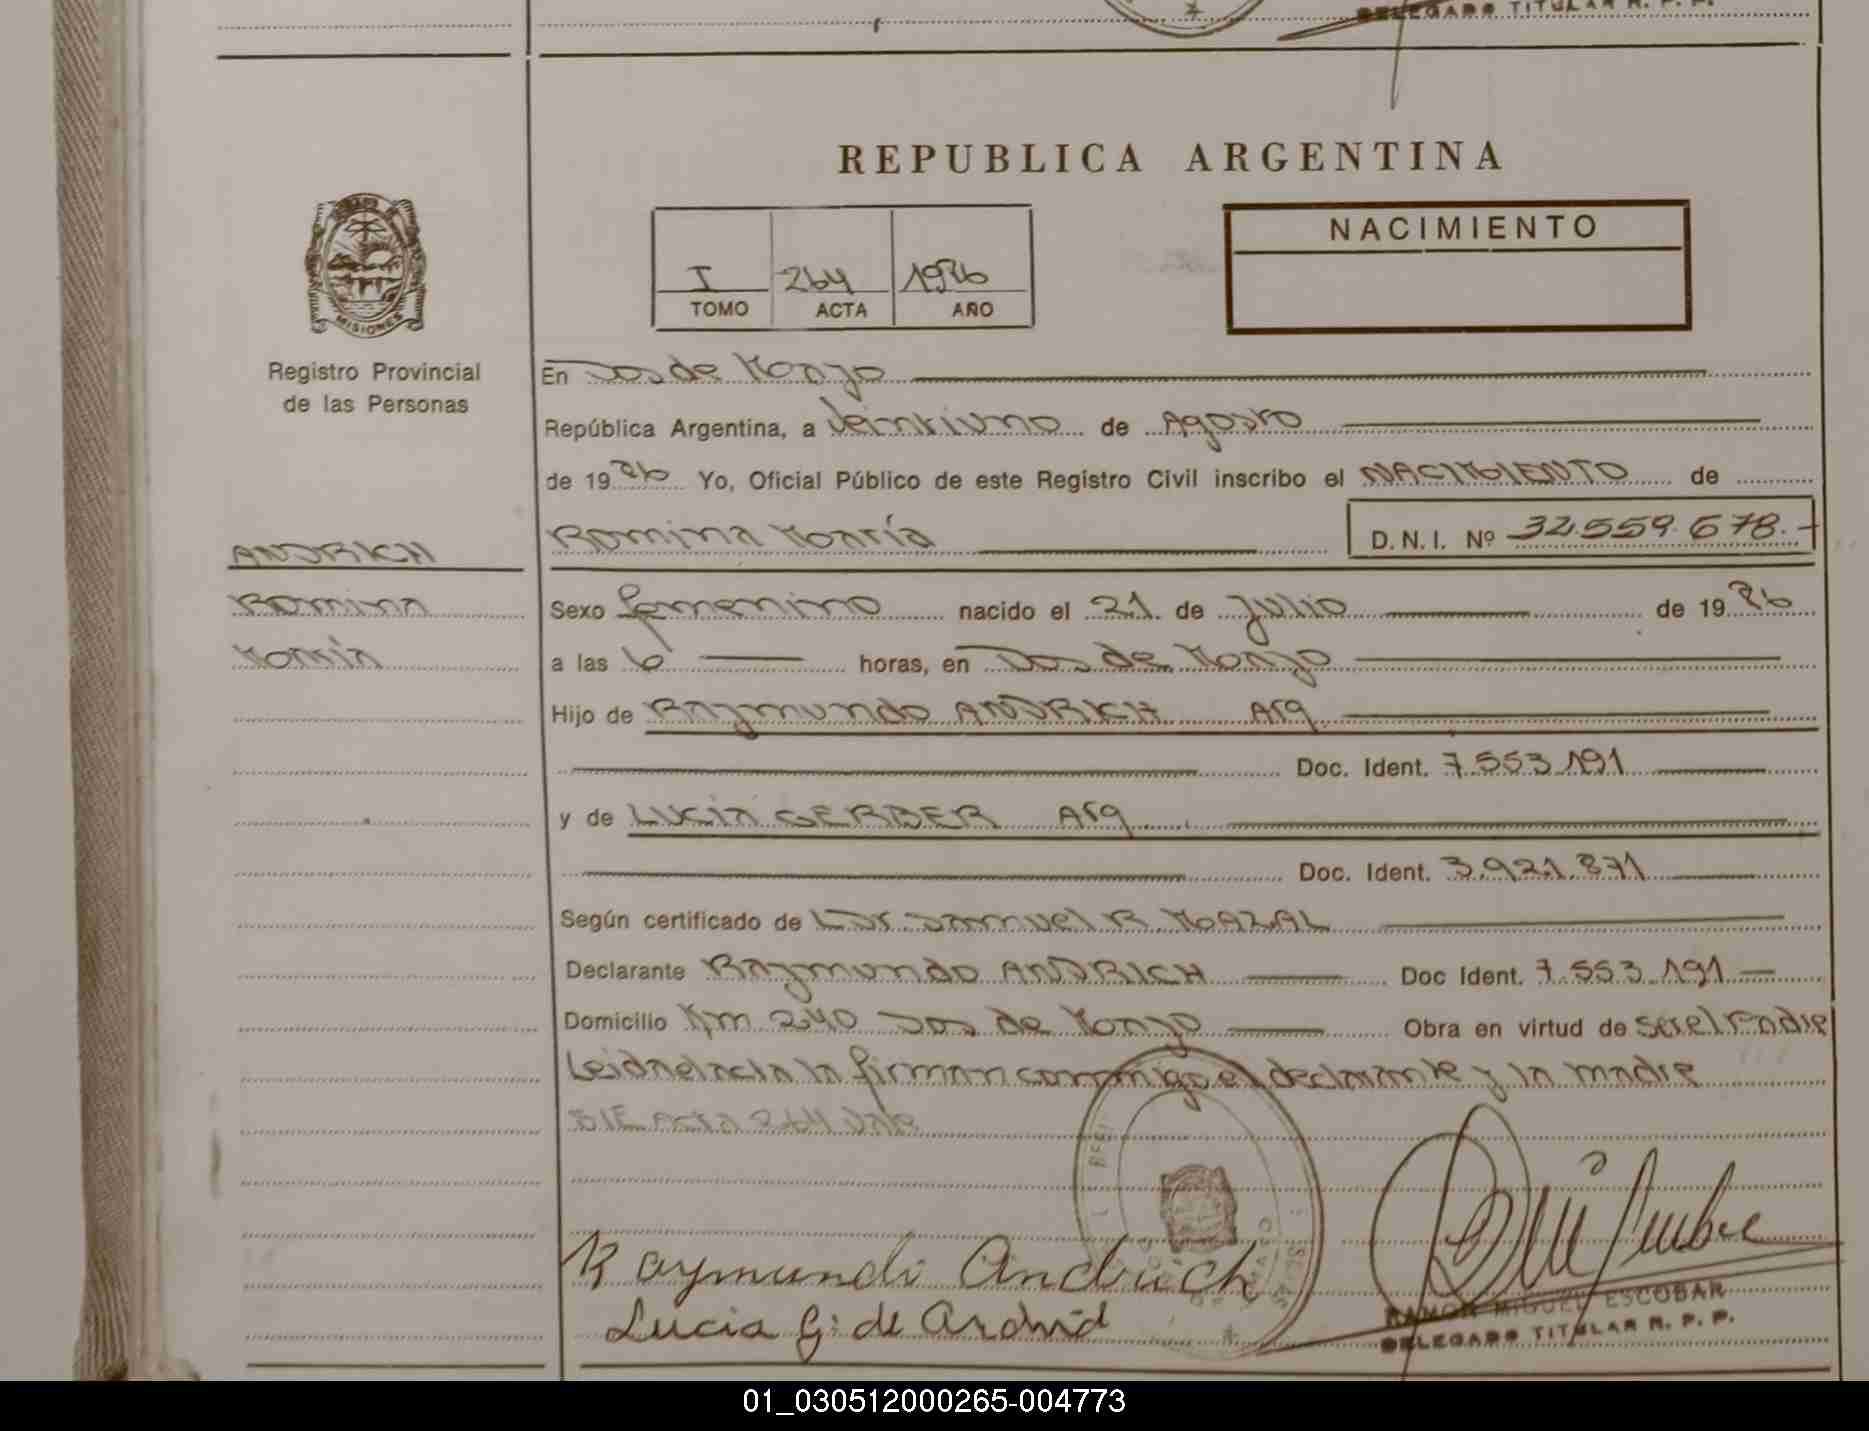 DELEGADO TITULAR R. P. P.
REPUBLICA ARGENTINA
NACIMIENTO
I 264 1986
TOMO ACTA AÑO
MISIONES
Registro Provincial
de las Personas
En Dos de Mayo
República Argentina, a Veintiuno de Agosto
de 1986 Yo, Oficial Público de este Registro Civil inscribo el NACIMIENTO de
ANDRICH
Romina María
D.N.I. Nº 32.559.678.-
Romina
María
Sexo femenino nacido el 21 de Julio de 1986
a las 6 horas, en Dos de Mayo
Hijo de Raymundo ANDRICH Arg
Doc. Ident. 7.553.191
y de Lucia GERBER Arg
Doc. Ident. 3.921.871
Según certificado de Dr. Samuel R. MAZAL
Declarante Raymundo ANDRICH Doc Ident. 7.553.191
Domicilio Km 240 Dos de Mayo Obra en virtud de ser el Padre
Leida el acta la firman conmigo el declarante y la madre
S/E Acta 264 Vale
Raymundo Andrich
Lucia G. de Andrich
RAMON MIGUEL ESCOBAR
DELEGADO TITULAR R. P. P.
01_030512000265-004773